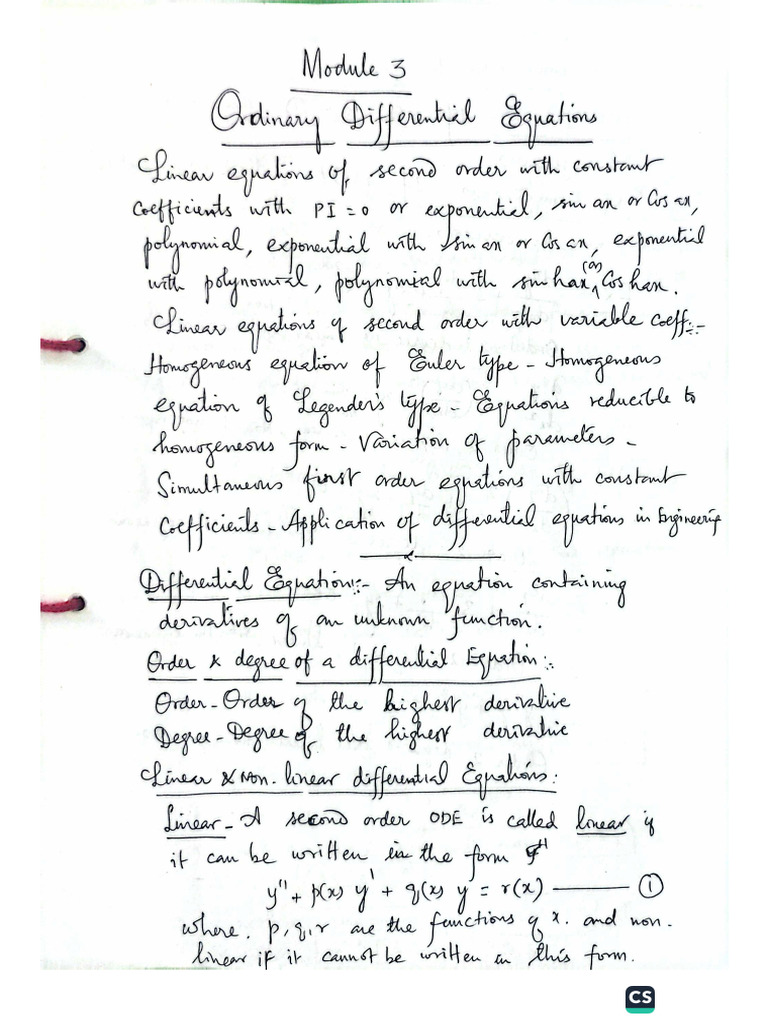 Module 3
Ordinary Differential Equations
Linear equations of second order with constant
coefficients with PI = 0 or exponential, sin ax or Cos ax,
polynomial, exponential with sin ax or Cos ax, exponential
with polynomial, polynomial with sin hax (or) Cos hax.
Linear equations of second order with variable coeff:-
Homogeneous equation of Euler type - Homogeneous
equation of Legender's type - Equations reducible to
homogeneous form - Variation of parameters -
Simultaneous first order equations with constant
Coefficients - Application of differential equations in Engineering
Differential Equation:- An equation containing
derivatives of an unknown function.
Order & degree of a differential Equation:-
Order - Order of the highest derivative
Degree - Degree of the highest derivative
Linear & Non-linear differential Equations:
Linear - A second order ODE is called linear if
it can be written in the form
y'' + p(x) y' + q(x) y = r(x) ——— ①
where p, q, r are the functions of x. and non-
linear if it cannot be written in this form.
CS